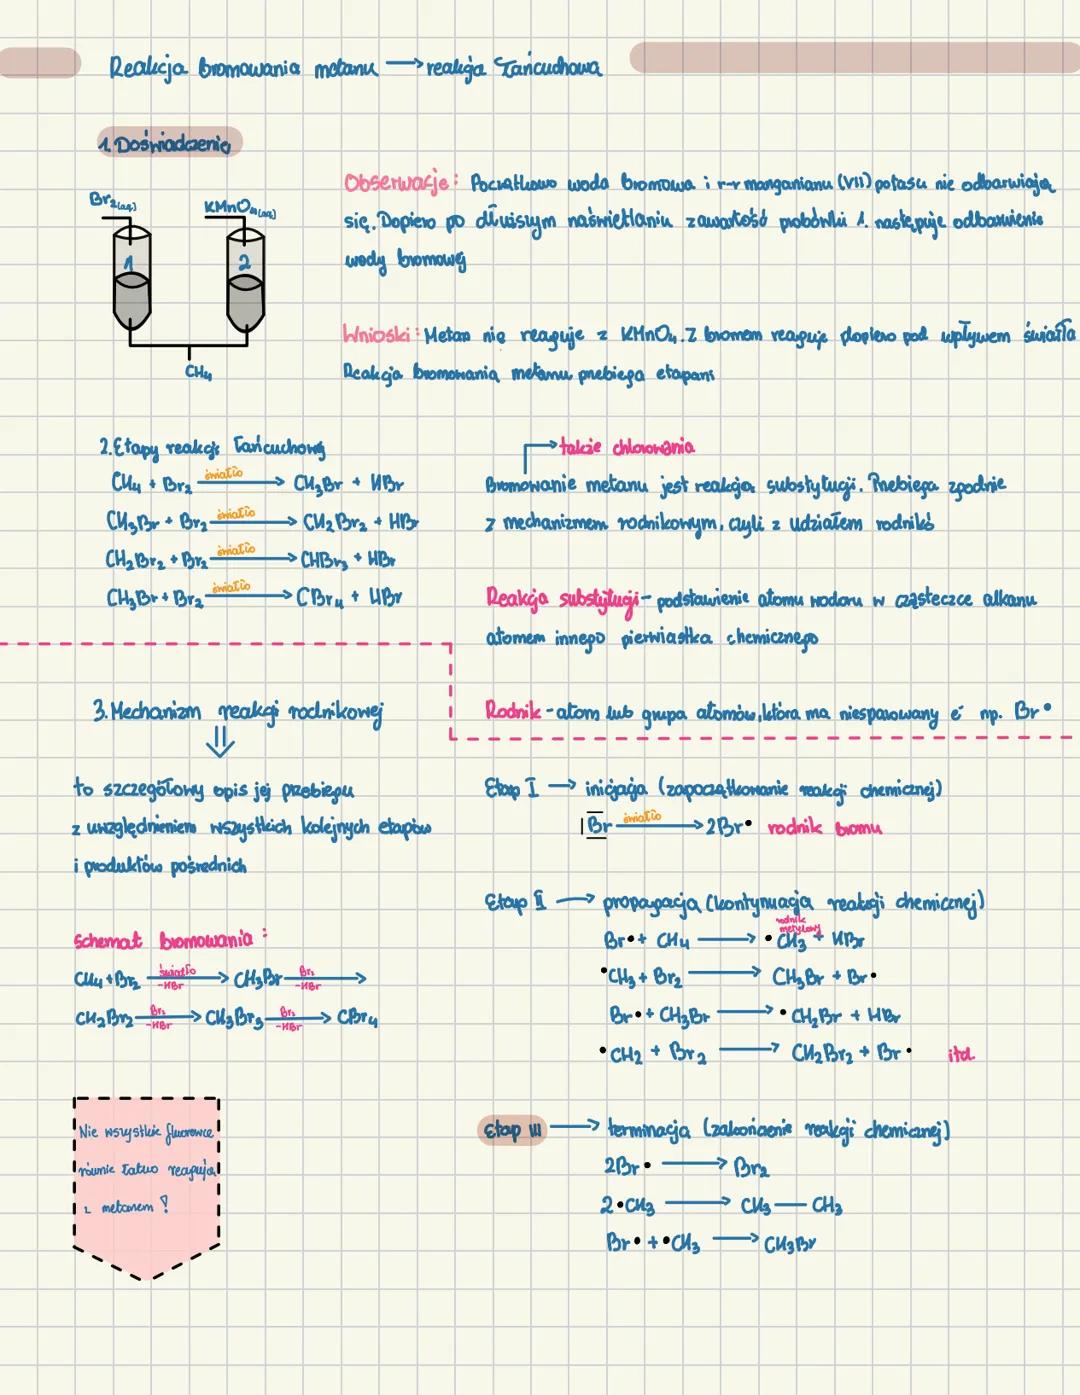 Reakcja bromowania metanu → reakcja łańcuchowa
1. Doświadczenie
Br₂(aq)
KMnO₄(aq)
1
2
CH₄
Obserwacje: Początkowo woda bromowa i r-r manganianu (VII) potasu nie odbarwiają
się. Dopiero po dłuższym naświetlaniu zawartość probówki 1. następuje odbarwienie
wody bromowej
Wnioski: Metan nie reaguje z KMnO₄. Z bromem reaguje dopiero pod wpływem światła
Reakcja bromowania metanu przebiega etapami
2. Etapy reakcji łańcuchowej
CH₄ + Br₂ światło → CH₃Br + HBr
CH₃Br + Br₂ światło → CH₂Br₂ + HBr
CH₂Br₂ + Br₂ światło → CHBr₃ + HBr
CH₃Br + Br₂ światło → CBr₄ + HBr
→ także chlorowania
Bromowanie metanu jest reakcją substytucji. Przebiega zgodnie
z mechanizmem rodnikowym, czyli z udziałem rodników
Reakcja substytucji - podstawienie atomu wodoru w cząsteczce alkanu
atomem innego pierwiastka chemicznego
Rodnik - atom lub grupa atomów, która ma niesparowany e⁻ np. Br•
3. Mechanizm reakcji rodnikowej
⇓
to szczegółowy opis jej przebiegu
z uwzględnieniem wszystkich kolejnych etapów
i produktów pośrednich
schemat bromowania:
CH₄ + Br₂ światło → -HBr CH₃Br Br₂ → -HBr
CH₂Br₂ Br₂ → -HBr CH₃Br₃ Br₂ → -HBr CBr₄
Nie wszystkie fluorowce
równie łatwo reagują
z metanem!
Etap I → inicjacja (zapoczątkowanie reakcji chemicznej)
|Br światło → 2Br• rodnik bromu
Etap II → propagacja (kontynuacja reakcji chemicznej)
rodnik metylowy
Br• + CH₄ → •CH₃ + HBr
•CH₃ + Br₂ → CH₃Br + Br•
Br• + CH₃Br → •CH₂Br + HBr
•CH₂ + Br₂ → CH₂Br₂ + Br• itd.
Etap III → terminacja (zakończenie reakcji chemicznej)
2Br• → Br₂
2•CH₃ → CH₃ — CH₃
Br• + •CH₃ → CH₃Br